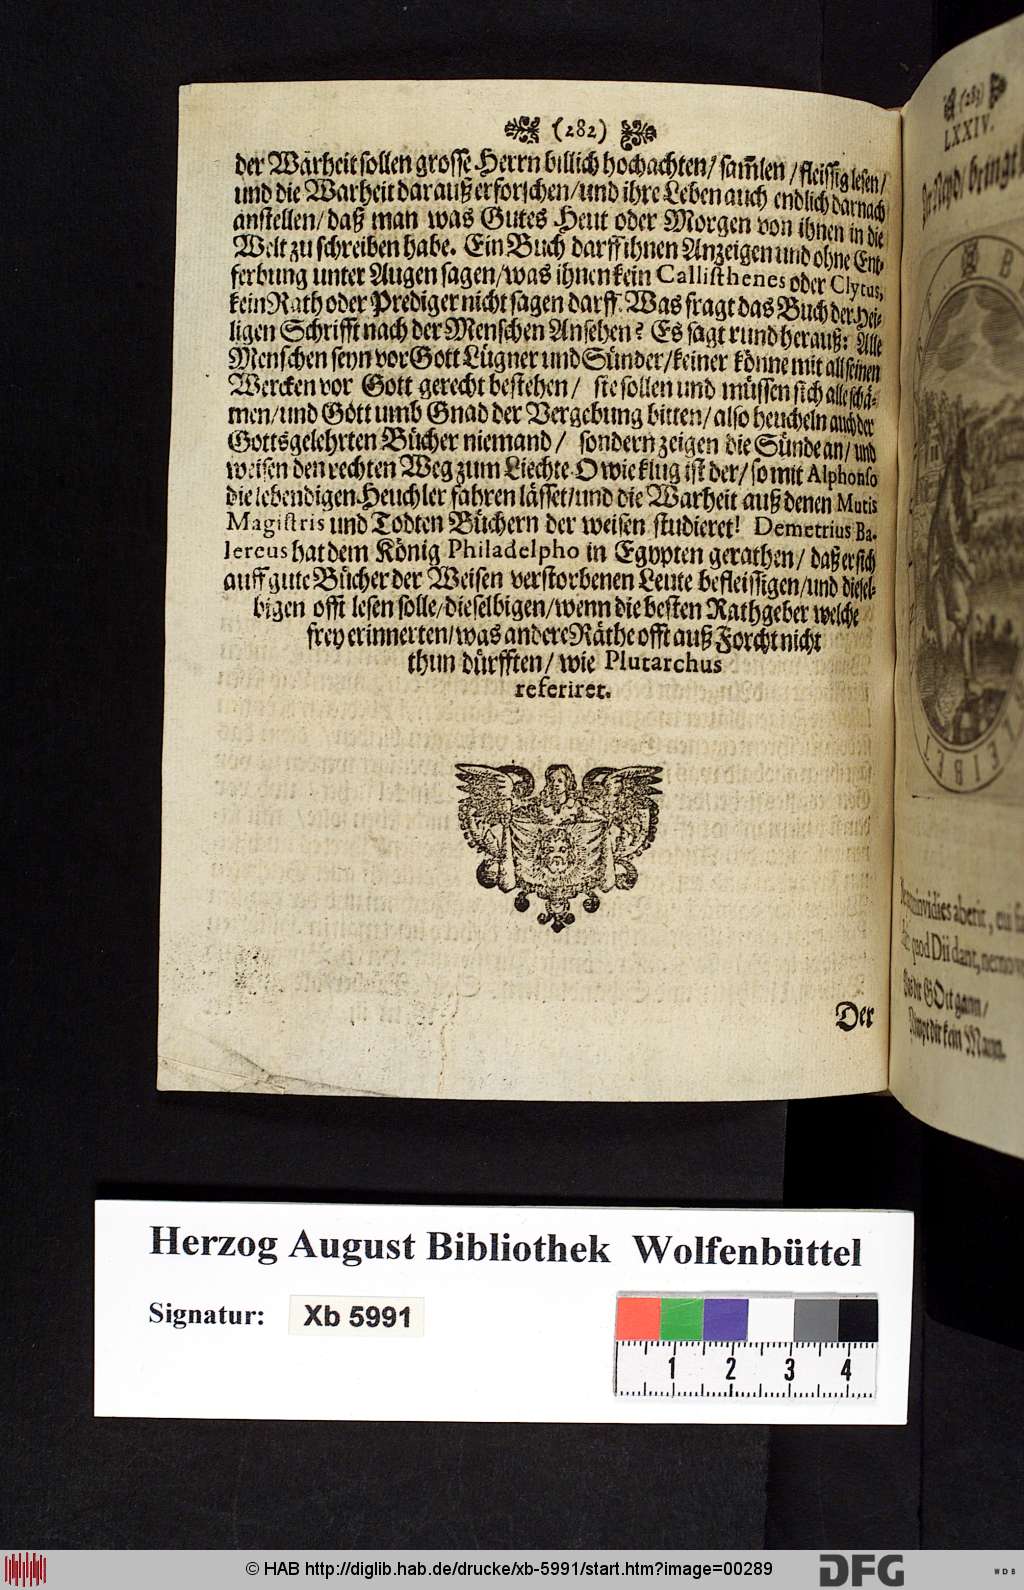 (282)
der Warheit sollen grosse Herrn billich hochachten/ sam̃len / fleissig lesen/
und die Warheit darauß erforschen/und ihre Leben auch endlich darnach
anstellen/ daß man was Gutes Heut oder Morgen von ihnen in die
Welt zu schreiben habe. Ein Buch darff ihnen Anzeigen und ohne Ent-
ferbung unter Augen sagen/was ihnen kein Callisthenes oder Clytus,
kein Rath oder Prediger nicht sagen darff. Was fragt das Buch der Hei-
ligen Schrifft nach der Menschen Ansehen? Es sagt rund herauß: Alle
Menschen seyn vor Gott Lügner und Sünder/keiner könne mit all seinen
Wercken vor Gott gerecht bestehen/ sie sollen und müssen sich alle schä-
men/und Gott umb Gnad der Vergebung bitten/ also heucheln auch der
Gottsgelehrten Bücher niemand/ sondern zeigen die Sünde an/ und
weisen den rechten Weg zum Liechte. O wie klug ist der/ so mit Alphonso
die lebendigen Heuchler fahren lässet/und die Warheit auß denen Mutis
Magistris und Todten Büchern der weisen studieret! Demetrius Ba-
lereus hat dem König Philadelpho in Egypten gerathen/ daß er sich
auff gute Bücher der Weisen verstorbenen Leute befleissigen/und diesel-
bigen offt lesen solle/dieselbigen/wenn die besten Rathgeber welche
frey erinnerten/was andere Räthe offt auß Forcht nicht
thun dürfften/ wie Plutarchus
referiret.
Der
(283)
LXXIV.
Neyd/ bringt
invidies aberit, cui
quod Dii dant, nemo
Was dir GOtt gann/
Nimpt dir kein Mann.
Herzog August Bibliothek Wolfenbüttel
Signatur: Xb 5991
1 2 3 4
© HAB http://diglib.hab.de/drucke/xb-5991/start.htm?image=00289
DFG
WDB